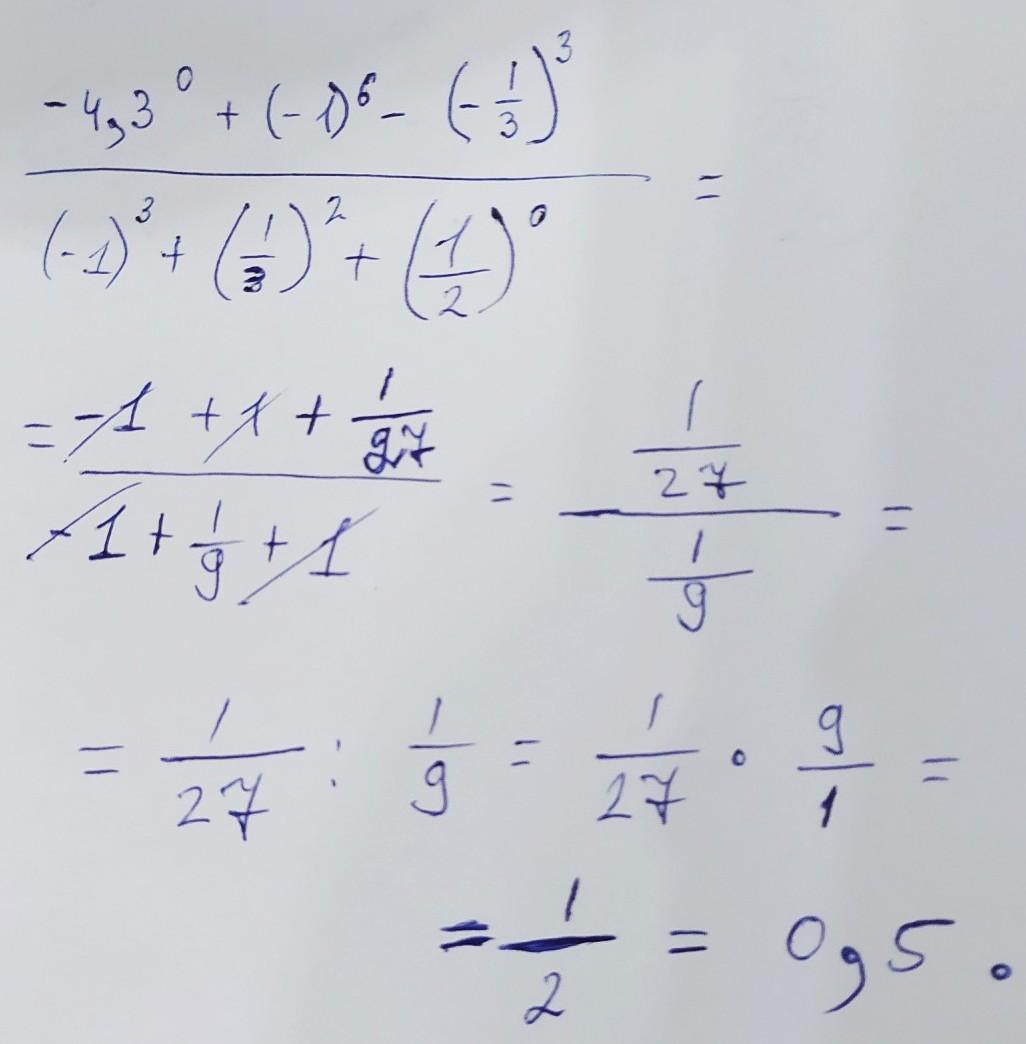 (-4,3^0 + (-1)^6 - (-1/3)^3) / ((-1)^3 + (1/3)^2 + (1/2)^0) =
= (-1 + 1 + 1/27) / (-1 + 1/9 + 1) = (1/27) / (1/9) =
= 1/27 : 1/9 = 1/27 · 9/1 =
= 1/2 = 0,5.